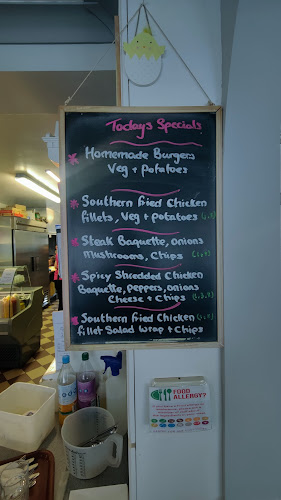 Todays Specials
* Homemade Burgers
Veg + potatoes
* Southern fried Chicken
fillets, Veg + potatoes
* Steak Baguette, onions
Mushrooms, Chips
* Spicy Shredded Chicken
Baguette, peppers, onions
Cheese + Chips
* Southern fried Chicken
fillet Salad wrap + Chips
FOOD
ALLERGY?